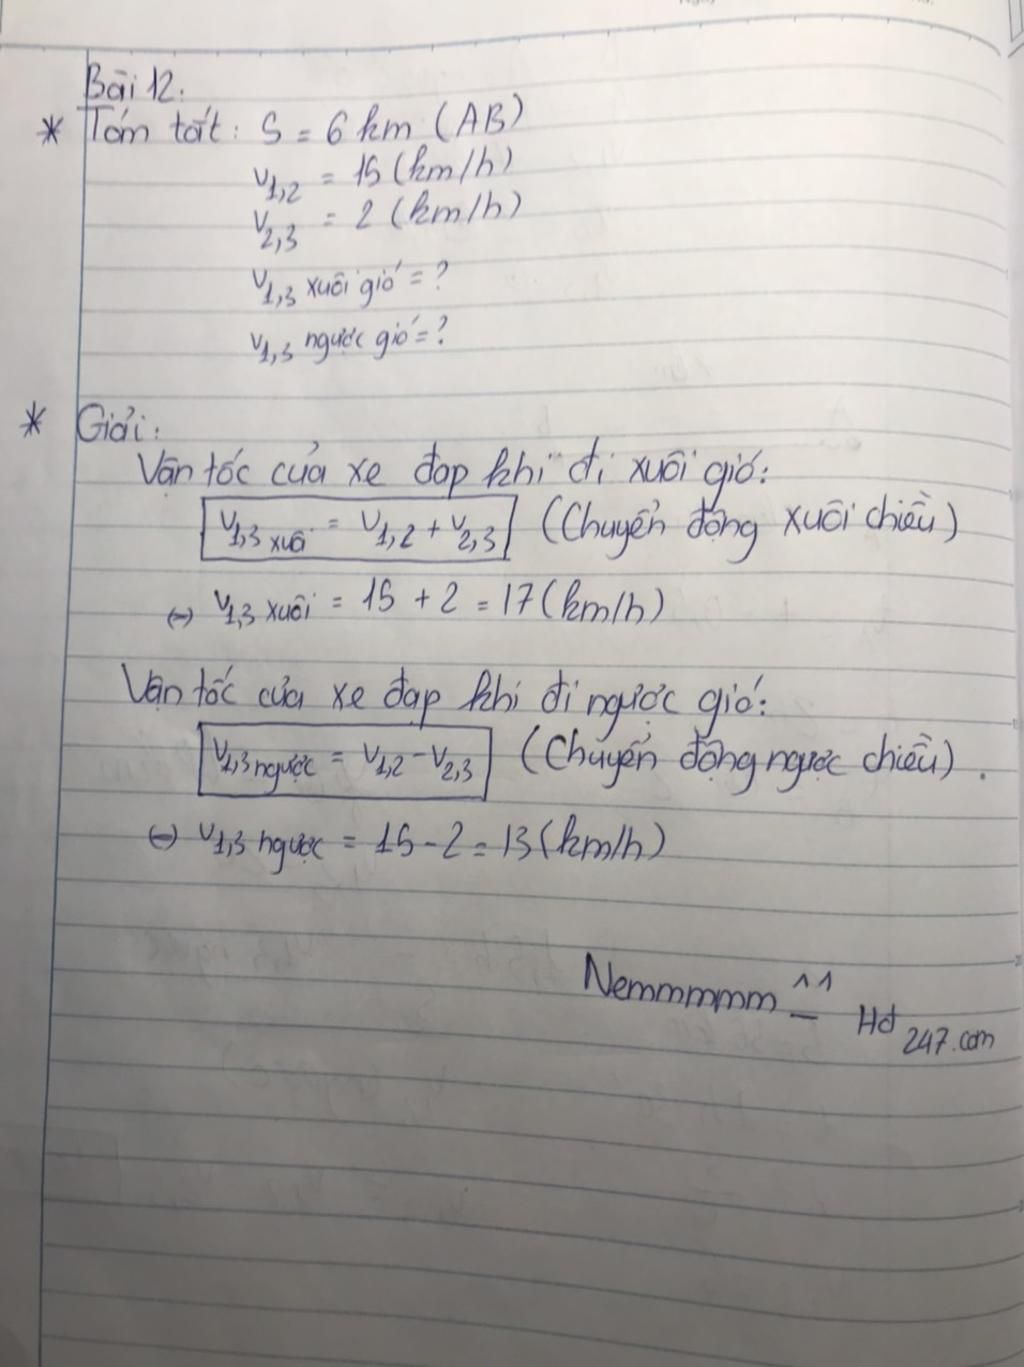 Bài 12:
* Tóm tắt: S = 6 km (AB)
v1,2 = 15 (km/h)
v2,3 = 2 (km/h)
v1,3 xuôi gió = ?
v1,3 ngược gió = ?
* Giải:
Vận tốc của xe đạp khi đi xuôi gió:
v1,3 xuôi = v1,2 + v2,3 (Chuyển động xuôi chiều)
(=) v1,3 xuôi = 15 + 2 = 17 (km/h)
Vận tốc của xe đạp khi đi ngược gió:
v1,3 ngược = v1,2 - v2,3 (Chuyển động ngược chiều).
(=) v1,3 ngược = 15 - 2 = 13 (km/h)
Nemmmmm ^_^ Hd 247.com